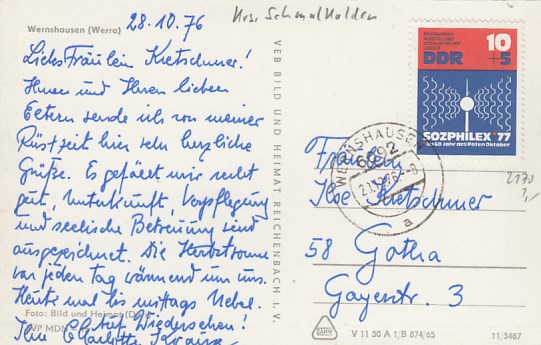 Wernshausen (Werra)
28.10.76
Krs. Schmalkalden
Liebes Fräulein Kretschmer!
Ihnen und Ihren lieben
Eltern sende ich von meiner
Rüstzeit hier sehr herzliche
Grüße. Es gefällt mir recht
gut, Unterkunft, Verpflegung
und seelische Betreuung sind
ausgezeichnet. Die Herbstsonne
war jeden Tag wärmend um uns.
Heute mal bis mittags Nebel.
Auf Wiedersehen!
Ihre Charlotte Krause
Foto: Bild und Heimat
EVP MDN
VEB BILD UND HEIMAT REICHENBACH I. V.
BRIEFMARKEN-
AUSSTELLUNG
SOZIALISTISCHER
LÄNDER
10
+5
DDR
SOZPHILEX '77
60 Jahre des Roten Oktober
WERNSHAUSEN
6092
a
Fräulein
Ilse Kretschmer
2170
58 Gotha
Gayerstr. 3
V 11 50 A 1/B 874/65
11/3487